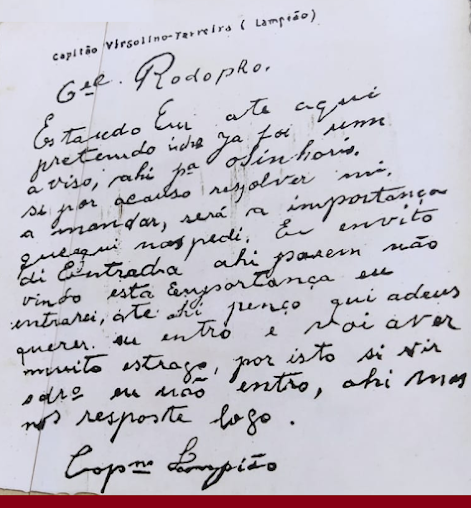 Capitão Virgolino Ferreira (Lampeão)
Cel. Rodopho.
Estando Eu ate aqui
pretendo ja foi um
aviso, ahi pª osinhoris.
si por acauso resolver mi.
a mandar, será a importança
que aqui nos pedi. Eu envito
di Entrada ahi porem não
vindo esta Emportança eu
entrarei, ate ahi penço qui adeus
querer. eu entro e vai aver
muito estrago, por isto si vir
odrº eu não entro, ahi mas
nos resposte logo.
Capm Lampião